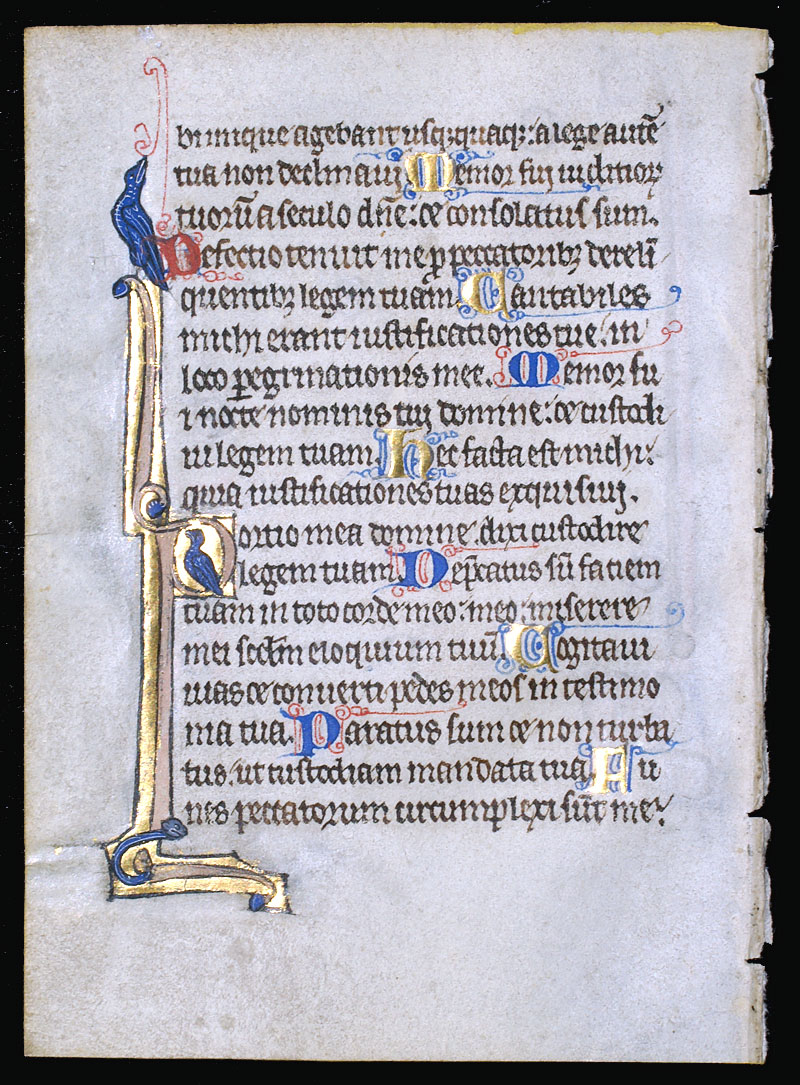 bi inique agebant usq; quaq;: a lege autē
tua non declinaui. Memor fui iudicioꝝ
tuorū a seculo dn̄e: et consolatus sum.
Defectio tenuit me ꝓ peccatoribꝫ dereli
quentibꝫ legem tuam. Cantabiles
michi erant iustificationes tue: in
loco ꝑegrinationis mee. Memor fu
i nocte nominis tui domine: et custodi
ui legem tuam. Hec facta est michi:
quia iustificationes tuas exquisiui.
Portio mea domine: dixi custodire
legem tuam. Dep̄catus sū faciem
tuam in toto corde meo: meo: miserere
mei scd̄m eloquium tuū. Cogitaui
uias et conuerti pedes meos in testimo
nia tua. Paratus sum et non turba
tus: ut custodiam mandata tua. Fu
nes peccatorum circumplexi sūt me: